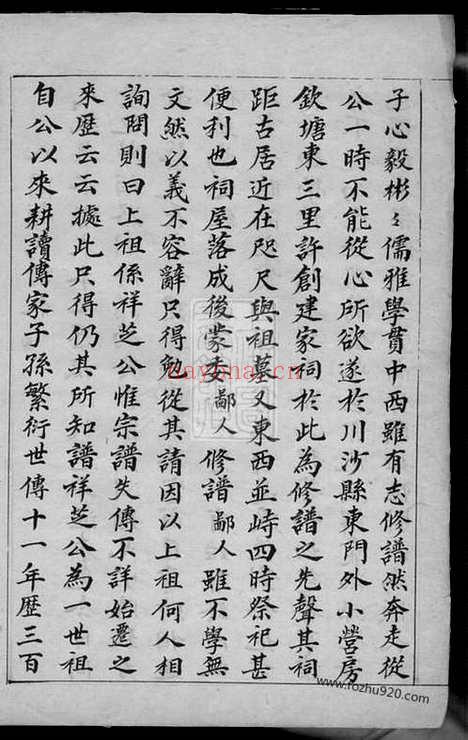 子心毅彬〻儒雅學貫中西雖有志修譜然奔走從
公一時不能從心所欲遂於川沙縣東門外小營房
欽塘東三里許創建家祠於此為修譜之先聲其祠
距古居近在咫尺與祖墓又東西並峙四時祭祀甚
便利也祠屋落成後蒙委鄙人修譜鄙人雖不學無
文然以義不容辭只得勉從其請因以上祖何人相
詢問則曰上祖係祥芝公惟宗譜失傳不詳始遷之
來歷云云據此只得仍其所知譜祥芝公為一世祖
自公以來耕讀傳家子孫繁衍世傳十一年歷三百
nayona.cn
www.fozhu920.com